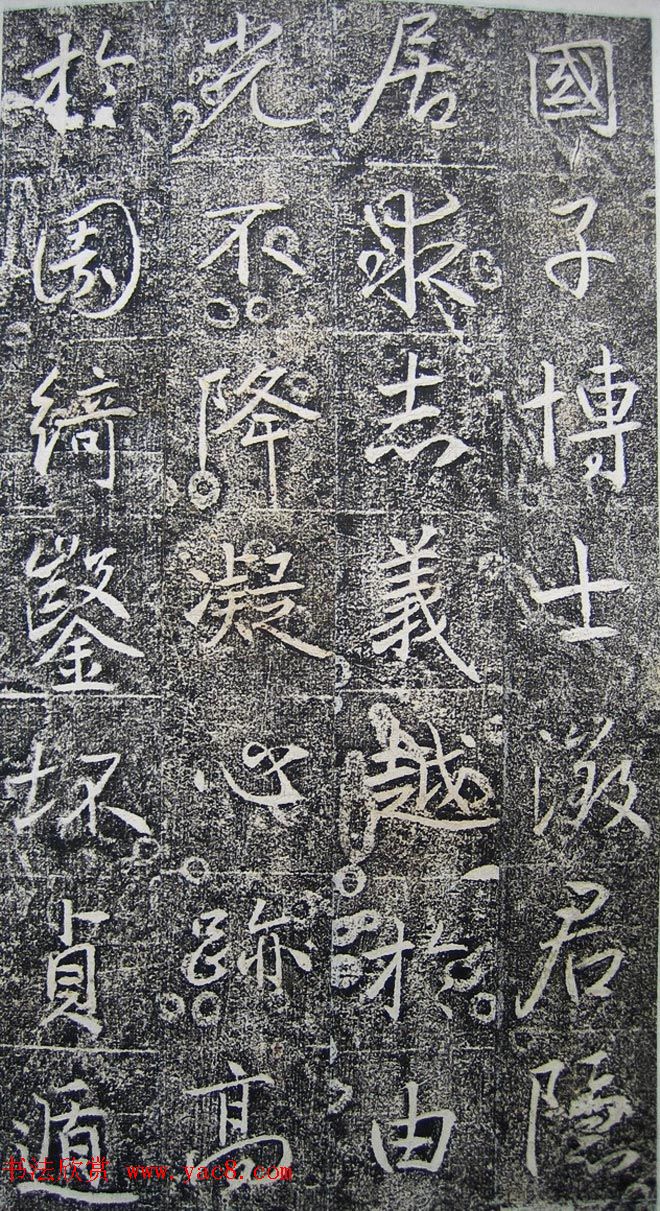 國子博士徵君隱
居求志義越於由
光不降凝心跡高
於園綺鑿坏貞遁
书法欣赏 www.yac8.com